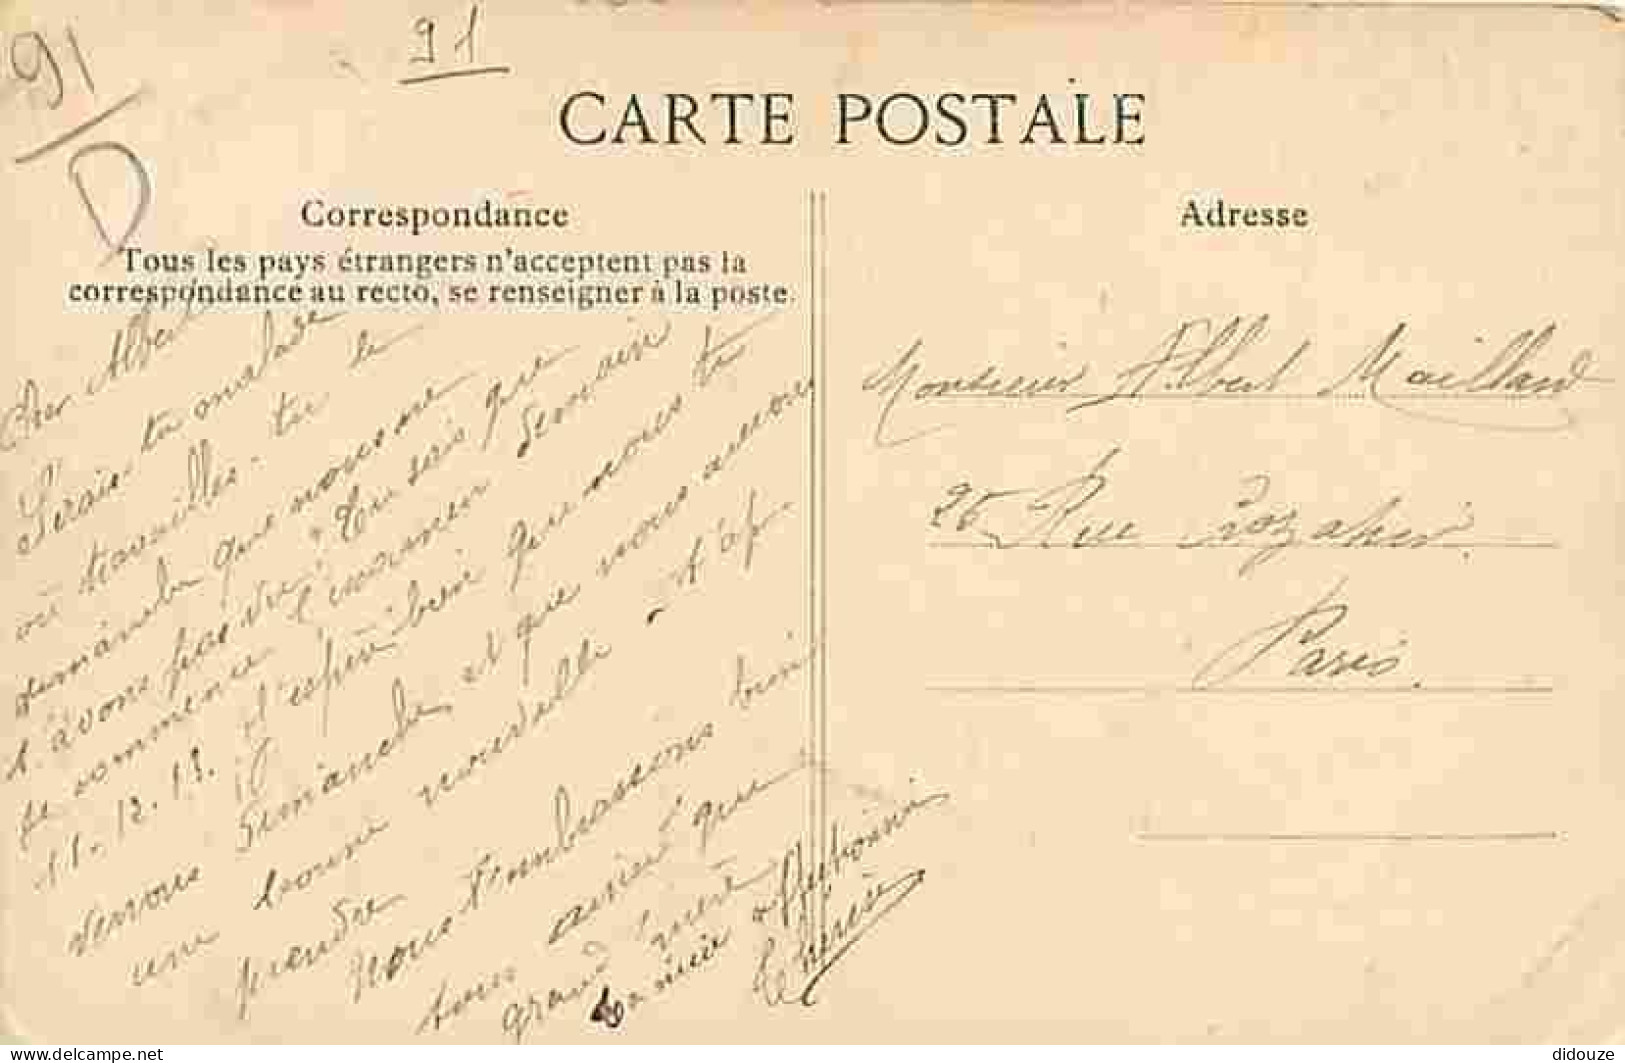 91
D
91
CARTE POSTALE
Correspondance
Tous les pays étrangers n'acceptent pas la
correspondance au recto, se renseigner à la poste.
Cher Albert
Serais-tu malade
où travailles-tu le
dimanche que nous ne
t'avons pas vu? Tu sais que
je commence l'examen demain
11.12.13. J'espère bien que nous te
verrons dimanche, et que nous aurons
une bonne nouvelle à t'ap-
prendre
Nous t'embrassons bien
tous ainsi que
grand'mère
Ta nièce affectionnée
Thérèse
Adresse
Monsieur Albert Maillard
Rue
Paris.
delcampe.net
didouze